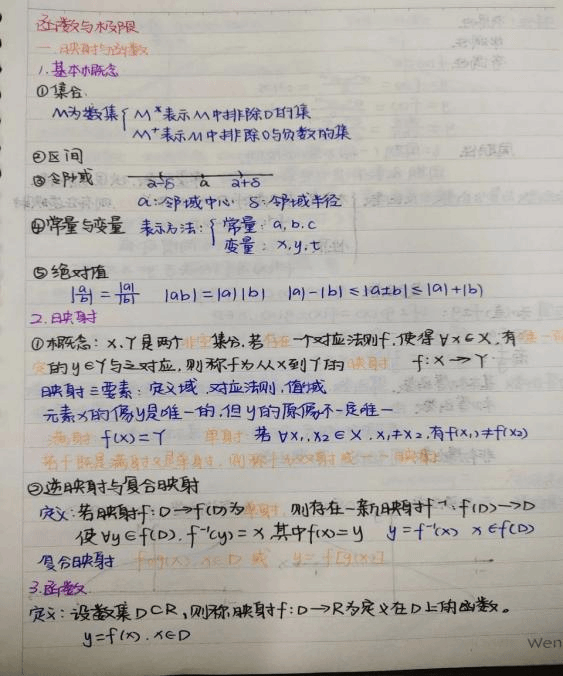 函数与极限
一.映射与函数
1.基本概念
①集合.
M为数集{ M*表示M中排除0的集
M⁺表示M中排除0与负数的集
②区间
③邻域 a-δ a a+δ
a:邻域中心 δ:邻域半径
④常量与变量 表示方法:{ 常量: a,b,c
变量: x,y,t
⑤绝对值
|a/b|=|a|/|b| |ab|=|a||b| |a|-|b|≤|a±b|≤|a|+|b|
2.映射
①概念: X,Y是两个非空集合,若存在一个对应法则f,使得∀x∈X,有唯一确
定的y∈Y与之对应,则称f为从X到Y的映射 f:X→Y
映射三要素:定义域.对应法则,值域
元素x的像y是唯一的,但y的原像不一定唯一
满射 f(X)=Y 单射:若∀x₁,x₂∈X.x₁≠x₂,有f(x₁)≠f(x₂)
若f既是满射又是单射,则称f为双射或一一映射
②逆映射与复合映射
定义:若映射f:D→f(D)为单射,则存在一新映射f⁻¹:f(D)→D
使∀y∈f(D),f⁻¹(y)=x,其中f(x)=y y=f⁻¹(x) x∈f(D)
复合映射 f∘g(x),x∈D 或 y=f[g(x)]
3.函数
定义:设数集D⊂R,则称映射f:D→R为定义在D上的函数。
y=f(x).x∈D
Wen